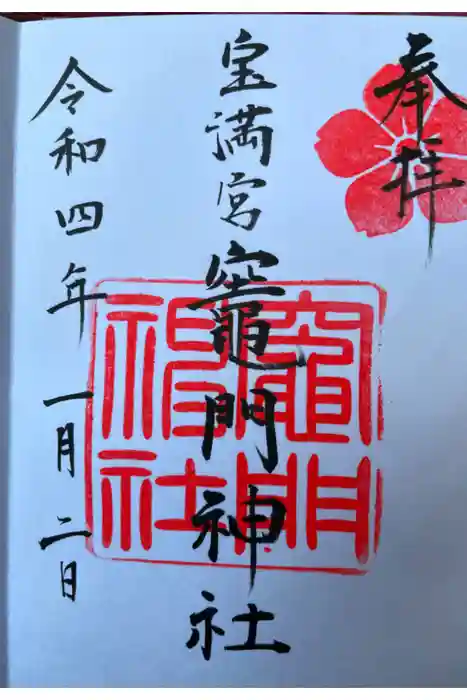 奉拝
宝満宮竈門神社
竈門
神社
令和四年一月二日